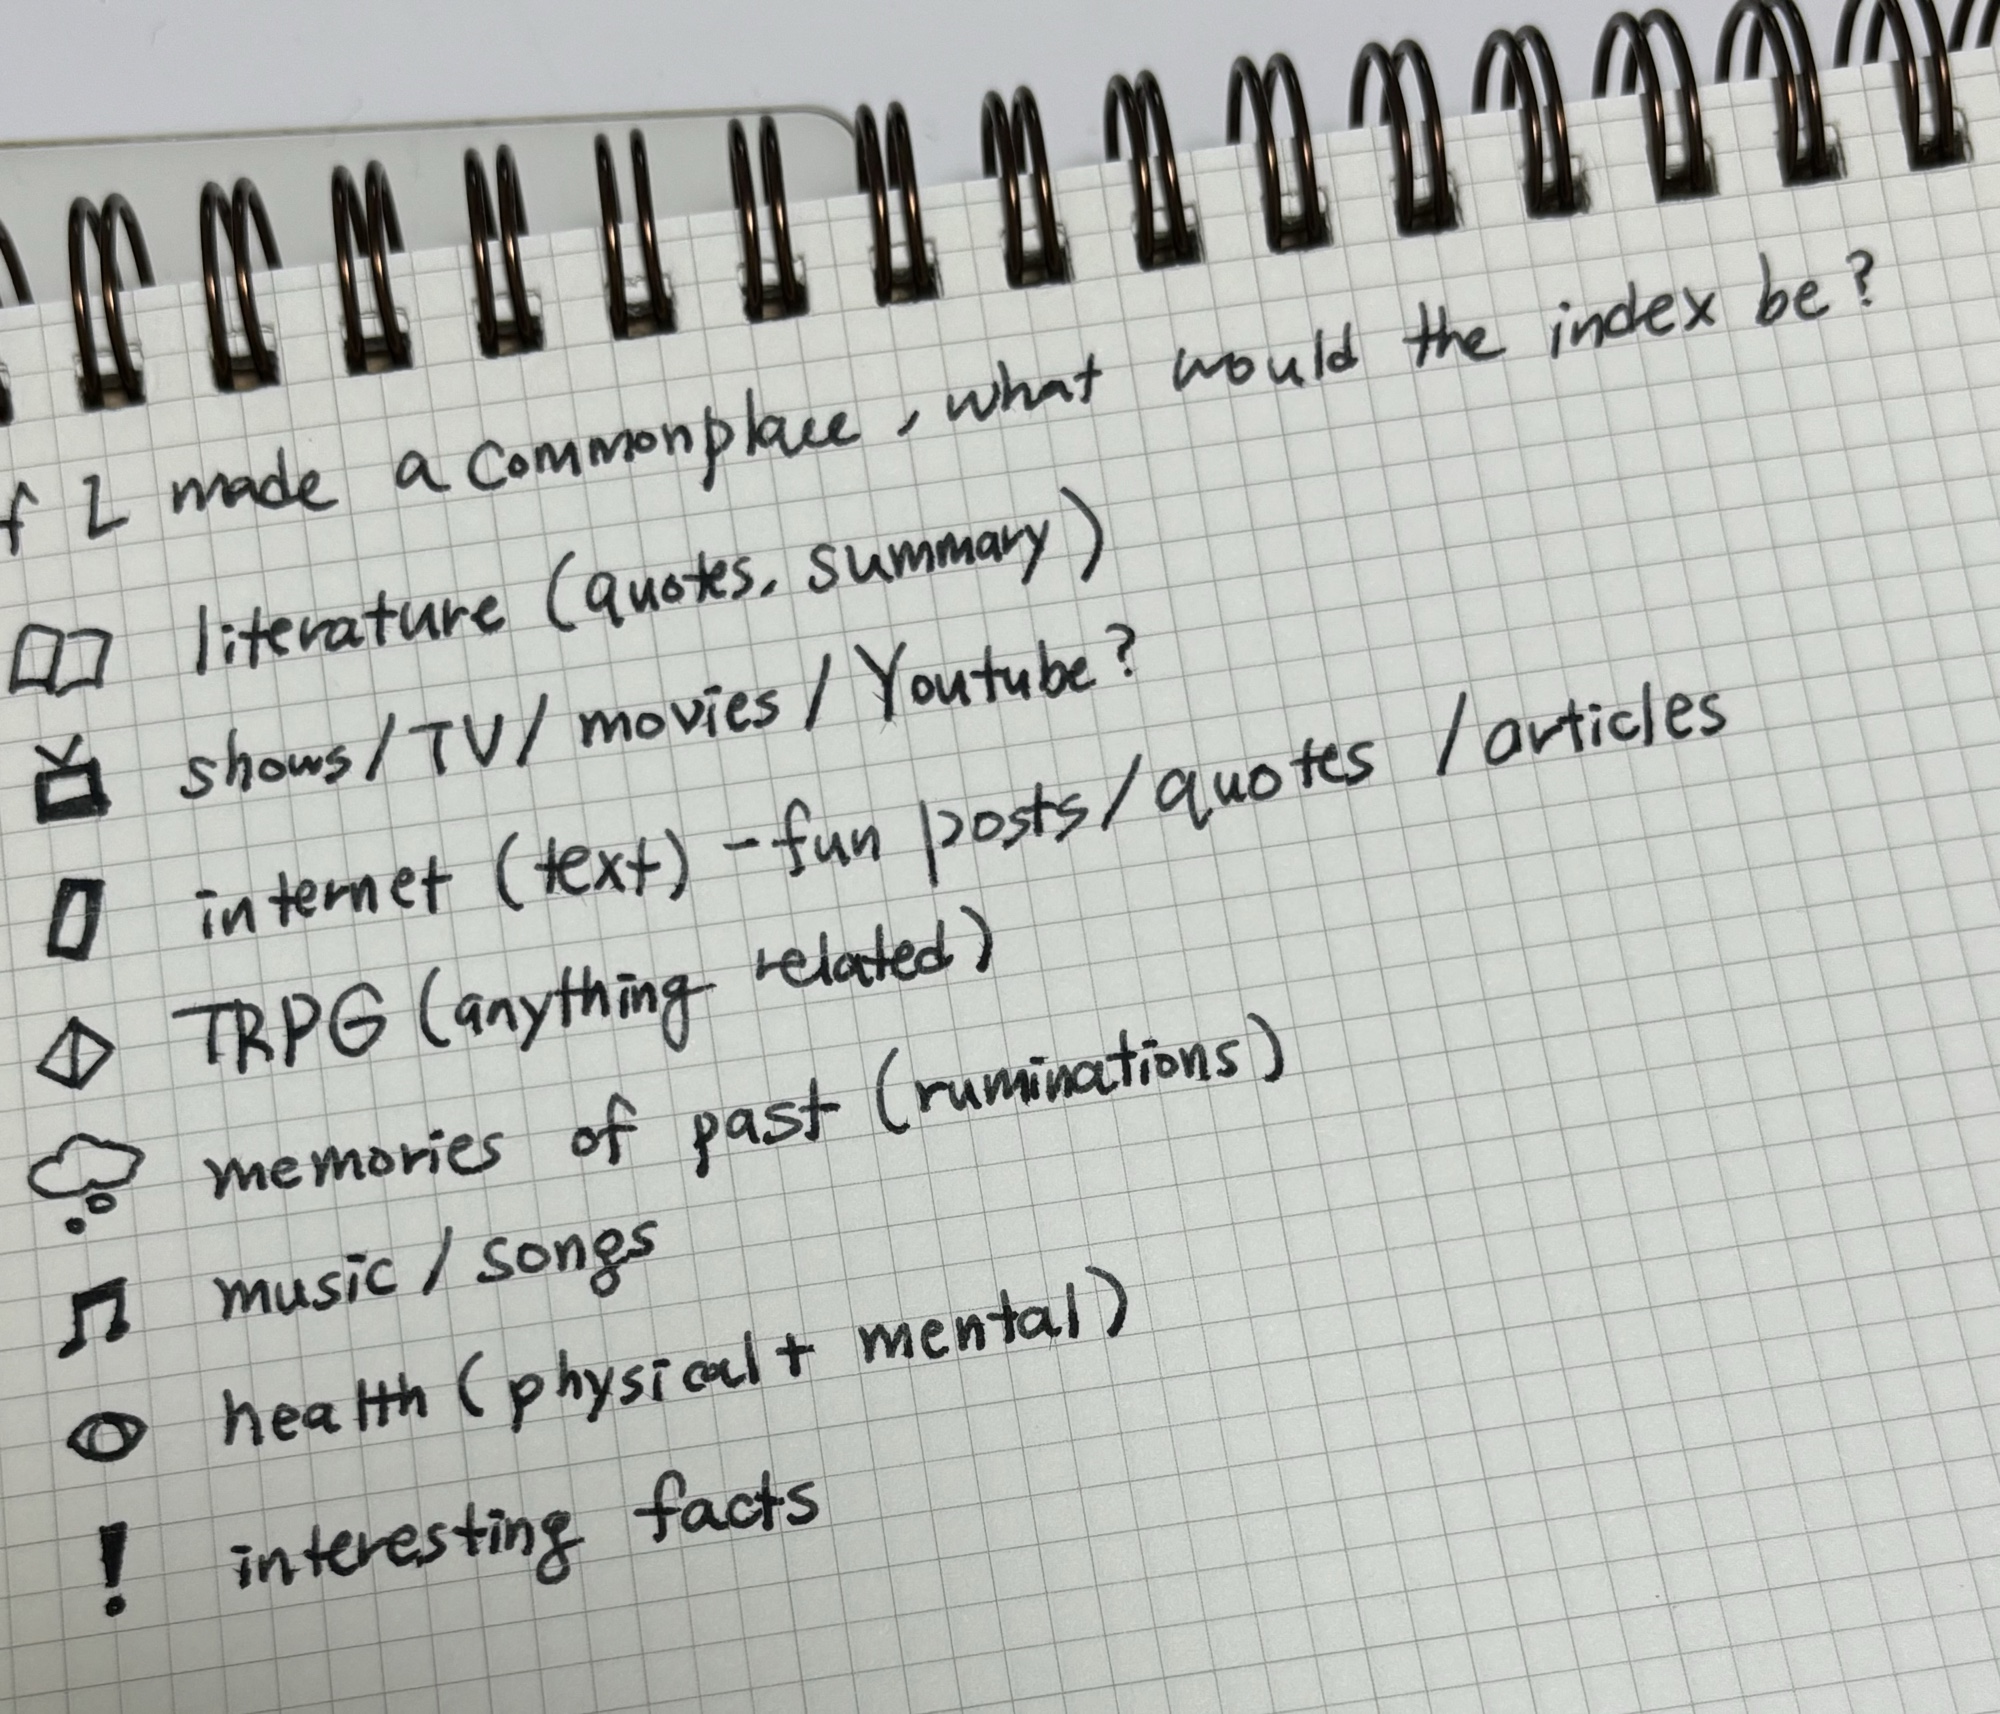 f I made a commonplace, what would the index be?
literature (quotes, summary)
shows/TV/movies/Youtube?
internet (text) - fun posts/quotes/articles
TRPG (anything related)
memories of past (ruminations)
music/songs
health (physical + mental)
! interesting facts